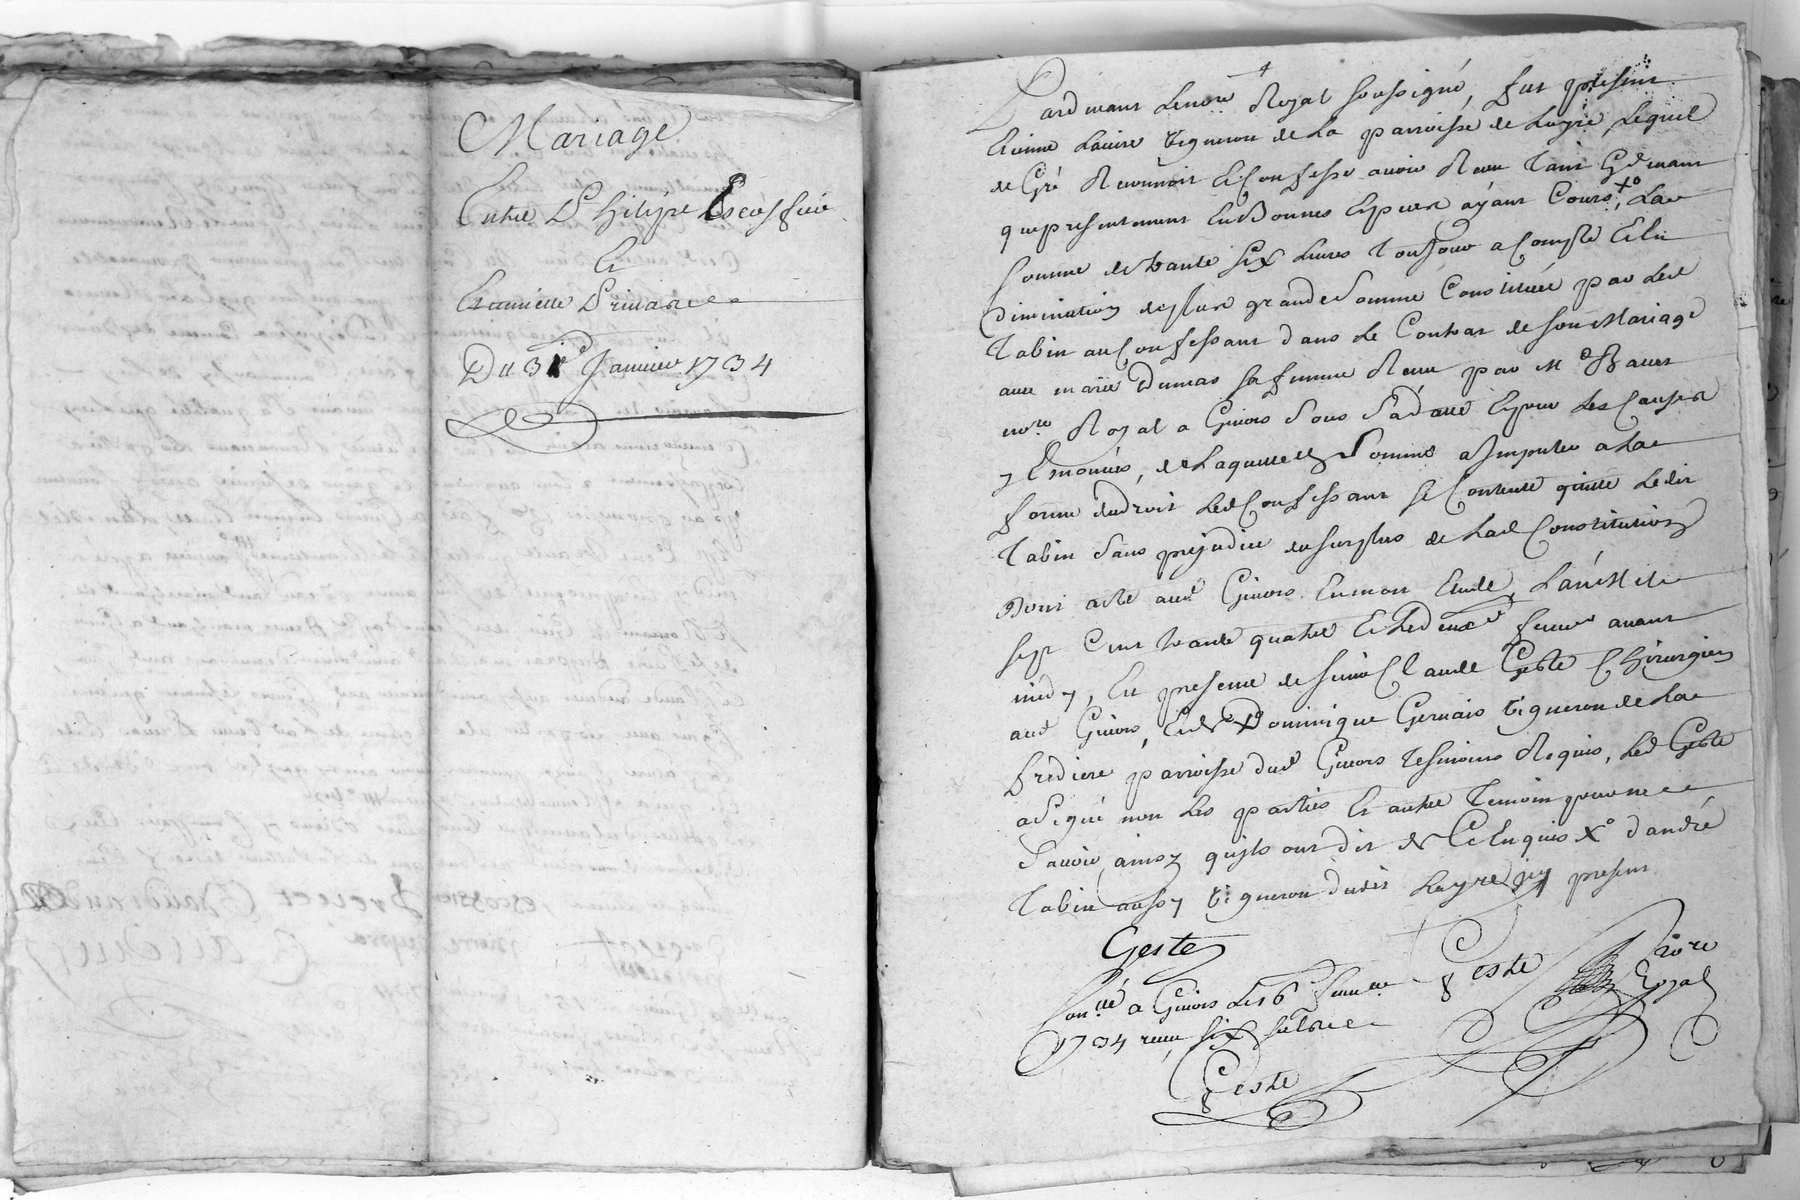 Mariage
Entre Philipe Escoffier
Et
Anthoinette Privas
Du 31e Janvier 1734
Pardevant Le no.re Royal soussigné, fut present
Etienne vigneron de La parroisse de Loyre Lequel
de Gré Reconnoit & Confesse avoir Receu tant Cydevant
que presentement En Bonnes Especes ayant Cours, x.o La
somme de trante six Livres toujour a Compte & En
Diminution de plus grande somme Constituée par Led.
Tabin au Confessant dans Le Contrat de son Mariage
avec marie Dumas sa femme Receu par M.e
no.re Royal a Givors sous sa datte Et pour Les Causes
y Enoncées, de Laquelle somme a Imputer a La
forme du droit Led. Confessant se Contente quitte Ledit
Tabin sans prejudice du surplus de Lad. Constitution
Dont acte aud. Givors En mon Etude, L'an Mil
sept Cent trante quatre & Le fevrier avant
midy, En presence de sieur Claude Geste Chirurgien
aud. Givors, Et de Dominique Gervais vigneron de La
Frediere parroisse dud. Givors Tesmoins Requis, Led. Geste
a signé non Les parties Et autre Temoin pour ne
savoir ainsy qu'ils ont dit de Ce Enquis x.o d'andré
Tabin aussy vigneron dudit Loyre icy present
Geste
Geste
no.re
Royal
Con.llé a Givors Le 16 fevrier
1734 receu six sols
Geste